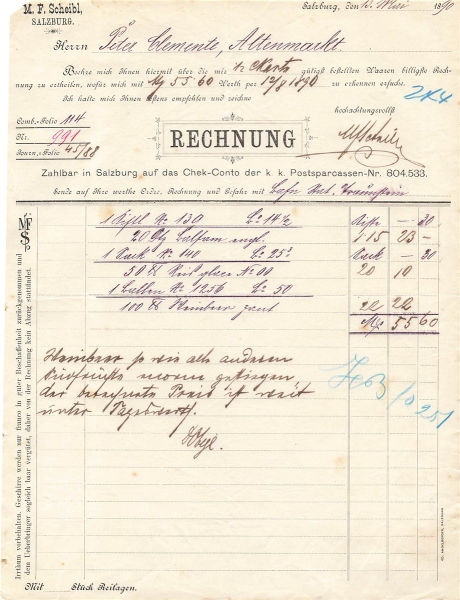 M. F. Scheibl,
SALZBURG.
Salzburg, den 10. Mai 1890
Herrn Peter Clemente, Altenmarkt
Beehre mich Ihnen hiermit über die mir gütigst bestellten Waaren billigste Rech-
nung zu ertheilen, wofür mich mit 55 60 Werth per 10/8 1890 zu erkennen ersuche.
Ich halte mich Ihnen bestens empfohlen und zeichne
hochachtungsvollst
Comb.-Folio 114
Nr. 991
Journ.-Folio 45/88
RECHNUNG
MFScheibl
Zahlbar in Salzburg auf das Chek-Conto der k. k. Postsparcassen-Nr. 804.533.
Sende auf Ihre werthe Ordre, Rechnung und Gefahr mit Traunstein
MFS
1 Kistl No 130 Bo 14½ Kiste — 30
20 115 23 —
1 Sack No 140 Bo 25 Sack — 30
50 Reis No 00 20 10
1 Ballen No 1256 Bo 50
100 Weinbeer 22 22
55 60
Weinbeer so wie alle anderen
Südfrüchte enorm gestiegen
der berechnete Preis ist weit
unter
Irrthum vorbehalten. Geschirre werden nur franco in guter Beschaffenheit zurückgenommen und
dem Uebertrager sogleich baar vergütet, daher von der Rechnung kein Abzug stattfindet.
Mit Stück Beilagen.